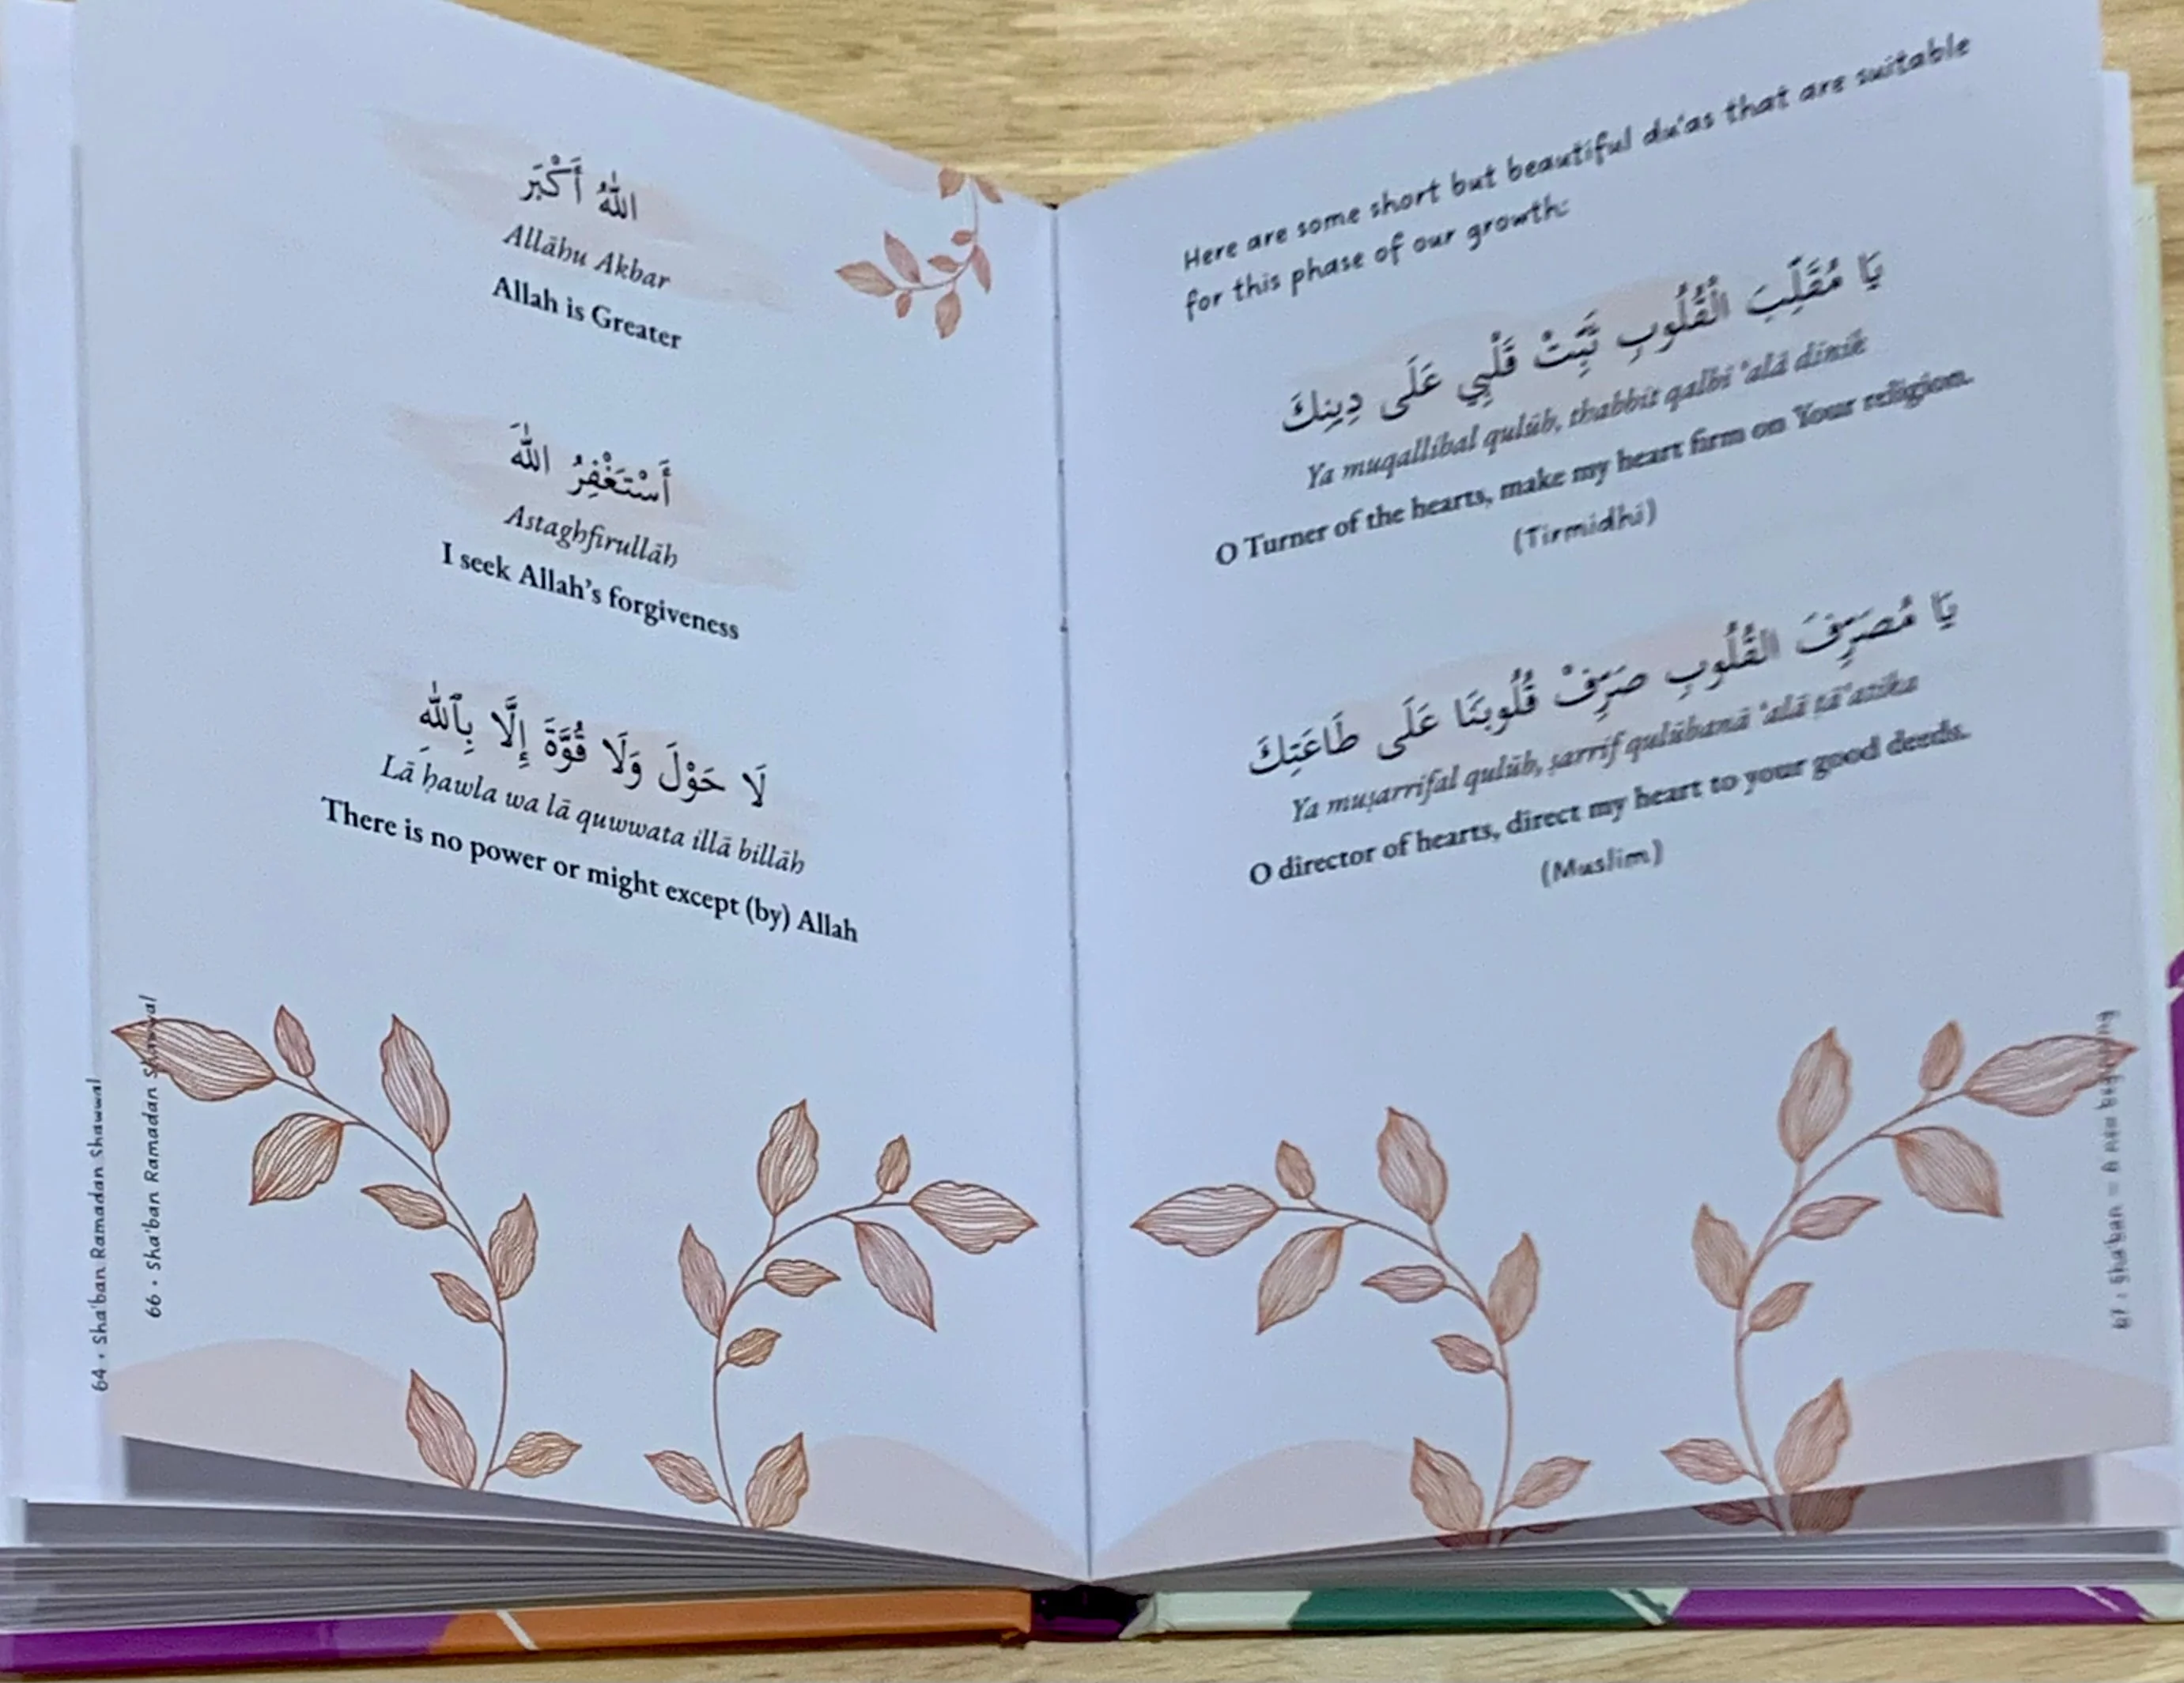 اللهُ أَكْبَر
Allāhu Akbar
Allah is Greater
أَسْتَغْفِرُ اللهَ
Astaghfirullāh
I seek Allah’s forgiveness
لَا حَوْلَ وَلَا قُوَّةَ إِلَّا بِٱللهِ
Lā ḥawla wa lā quwwata illā billāh
There is no power or might except (by) Allah
64 • Sha'ban Ramadan Shawwal
66 • Sha'ban Ramadan Shawwal
Here are some short but beautiful du'as that are suitable
for this phase of our growth:
يَا مُقَلِّبَ الْقُلُوبِ ثَبِّتْ قَلْبِي عَلَى دِينِكَ
Ya muqallibal qulūb, thabbit qalbi ‘alā dinik
O Turner of the hearts, make my heart firm on Your religion.
(Tirmidhi)
يَا مُصَرِّفَ القُلُوبِ صَرِّفْ قُلُوبَنَا عَلَى طَاعَتِكَ
Ya muṣarrifal qulūb, ṣarrif qulūbanā ‘alā ṭā‘atika
O director of hearts, direct my heart to your good deeds.
(Muslim)
67 • Sha'ban – a new beginning